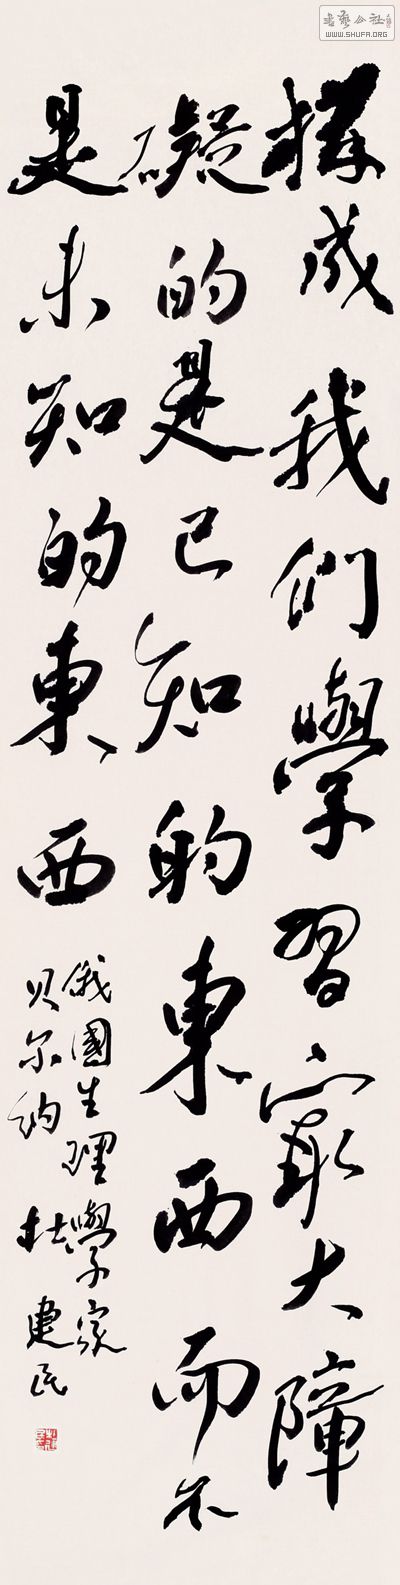 書藝公社
WWW.SHUFA.ORG
構成我們學習最大障
礙的是已知的東西而不
是未知的東西
俄國生理學家
贝尔纳 杜建民